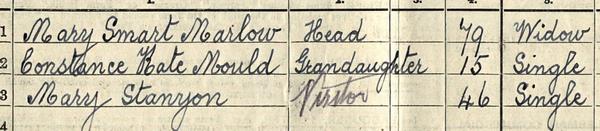 1 Mary Smart Marlow Head 79 Widow
2 Constance Kate Mould Grandaughter 15 Single
3 Mary Stanyon Visitor 46 Single
4